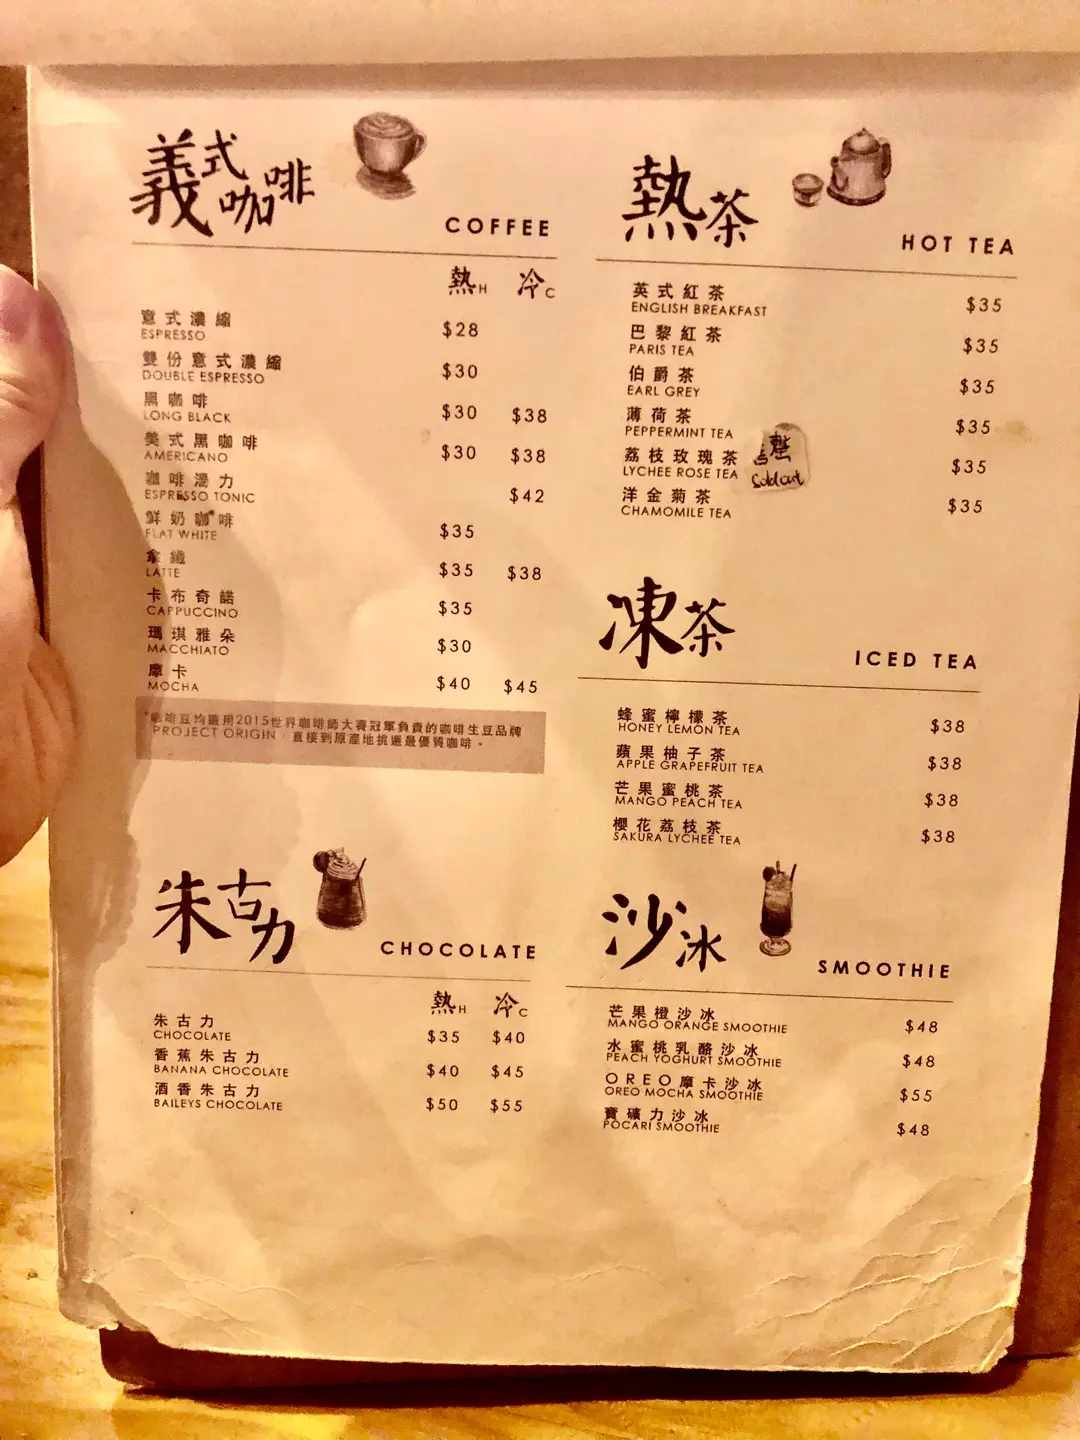 義式咖啡
COFFEE
熱H 冷C
意式濃縮
ESPRESSO $28
雙份意式濃縮
DOUBLE ESPRESSO $30
黑咖啡
LONG BLACK $30 $38
美式黑咖啡
AMERICANO $30 $38
咖啡湯力
ESPRESSO TONIC $42
鮮奶咖啡
FLAT WHITE $35
拿鐵
LATTE $35 $38
卡布奇諾
CAPPUCCINO $35
瑪琪雅朵
MACCHIATO $30
摩卡
MOCHA $40 $45
*咖啡豆均選用2015世界咖啡師大賽冠軍負責的咖啡生豆品牌
PROJECT ORIGIN，直接到原產地挑選最優質咖啡。
朱古力
CHOCOLATE
熱H 冷C
朱古力
CHOCOLATE $35 $40
香蕉朱古力
BANANA CHOCOLATE $40 $45
酒香朱古力
BAILEYS CHOCOLATE $50 $55
熱茶
HOT TEA
英式紅茶
ENGLISH BREAKFAST $35
巴黎紅茶
PARIS TEA $35
伯爵茶
EARL GREY $35
薄荷茶
PEPPERMINT TEA $35
荔枝玫瑰茶
LYCHEE ROSE TEA $35
Sold out
洋金菊茶
CHAMOMILE TEA $35
凍茶
ICED TEA
蜂蜜檸檬茶
HONEY LEMON TEA $38
蘋果柚子茶
APPLE GRAPEFRUIT TEA $38
芒果蜜桃茶
MANGO PEACH TEA $38
櫻花荔枝茶
SAKURA LYCHEE TEA $38
沙冰
SMOOTHIE
芒果橙沙冰
MANGO ORANGE SMOOTHIE $48
水蜜桃乳酪沙冰
PEACH YOGHURT SMOOTHIE $48
OREO摩卡沙冰
OREO MOCHA SMOOTHIE $55
寶礦力沙冰
POCARI SMOOTHIE $48